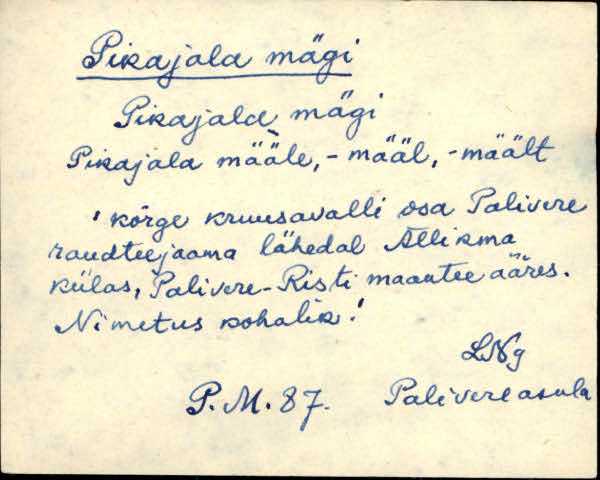 Pikajala mägi
Pikajala mägi
Pikajala mä̀äle, - määl, - mäält
' kõrge kruusavalli osa Palivere
raudteejaama lähedal Allikma
külas, Palivere-Risti maantee ääres.
Nimetus kohalik.'
LNg
P.M. 87. Palivere asula